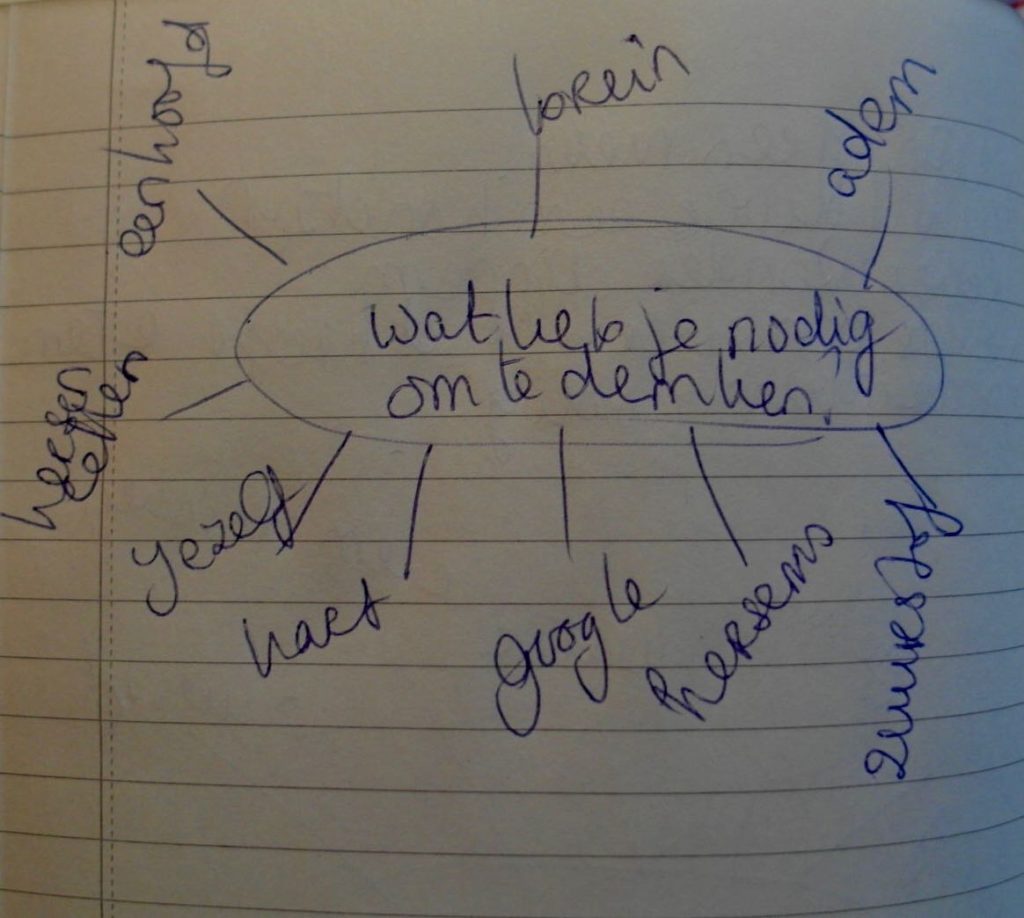 een hoofd
brein
adem
wat heb je nodig
om te denken?
jezelf
hart
google
hersens
zuurstof